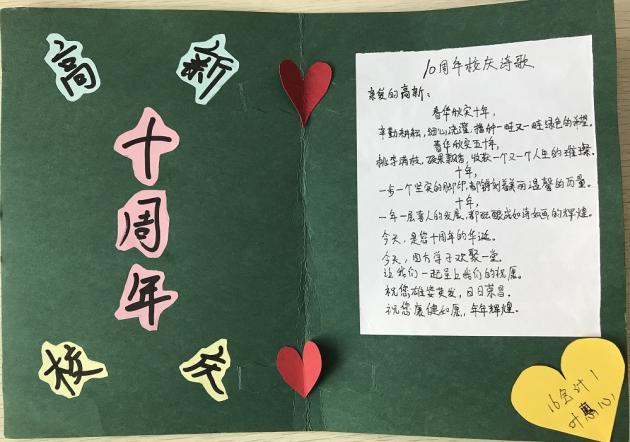 高新
十
周
年
校庆
10周年校庆诗歌
亲爱的高新：
春华秋实十年，
辛勤耕耘，细心浇灌，播种一畦又一畦绿色的希望。
春华秋实五十年，
桃李满枝，硕果飘香，收获一个又一个人生的璀璨。
十年，
一步一个坚实的脚印，都镌刻着美丽温馨的历量。
十年，
一年一层喜人的发展，都酝酿成如诗如画的辉煌。
今天，是您十周年的华诞。
今天，四方学子欢聚一堂。
让我们一起呈上我们的祝愿。
祝您雄姿英发，日日荣昌。
祝您康健如愿，年年辉煌。
16会计1
叶惠心